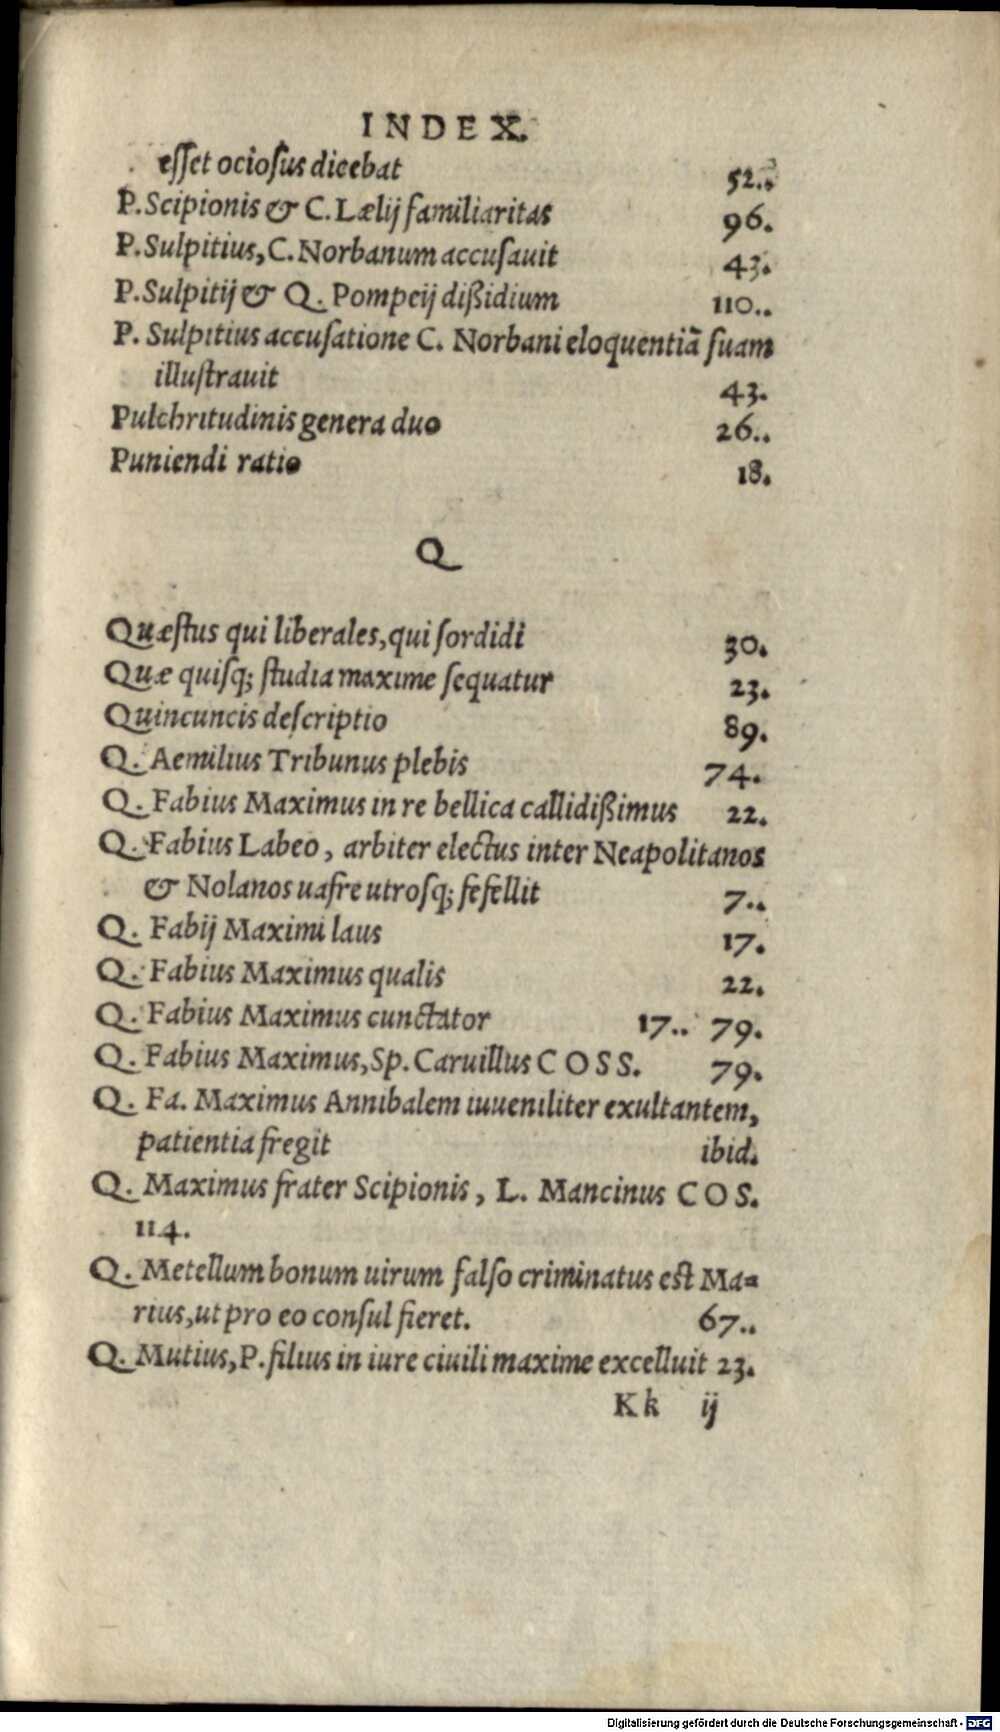 INDEX.
eſſet ocioſus dicebat 52..
P. Scipionis & C. Lælij familiaritas 96.
P. Sulpitius, C. Norbanum accuſauit 43.
P. Sulpitij & Q. Pompeij dißidium 110..
P. Sulpitius accuſatione C. Norbani eloquentiã ſuam
illuſtrauit 43.
Pulchritudinis genera duo 26..
Puniendi ratio 18.
Q
Quæſtus qui liberales, qui ſordidi 30.
Quæ quiſq; ſtudia maxime ſequatur 23.
Quincuncis deſcriptio 89.
Q. Aemilius Tribunus plebis 74.
Q. Fabius Maximus in re bellica callidißimus 22.
Q. Fabius Labeo, arbiter electus inter Neapolitanos
& Nolanos uafre utroſq; fefellit 7..
Q. Fabij Maximi laus 17.
Q. Fabius Maximus qualis 22.
Q. Fabius Maximus cunctator 17.. 79.
Q. Fabius Maximus, Sp. Caruillus COSS. 79.
Q. Fa. Maximus Annibalem iuueniliter exultantem,
patientia fregit ibid.
Q. Maximus frater Scipionis, L. Mancinus COS.
114.
Q. Metellum bonum uirum falſo criminatus est Ma=
rius, ut pro eo conſul fieret. 67..
Q. Mutius, P. filius in iure ciuili maxime excelluit 23.
Kk ij
Digitalisierung gefördert durch die Deutsche Forschungsgemeinschaft - DFG